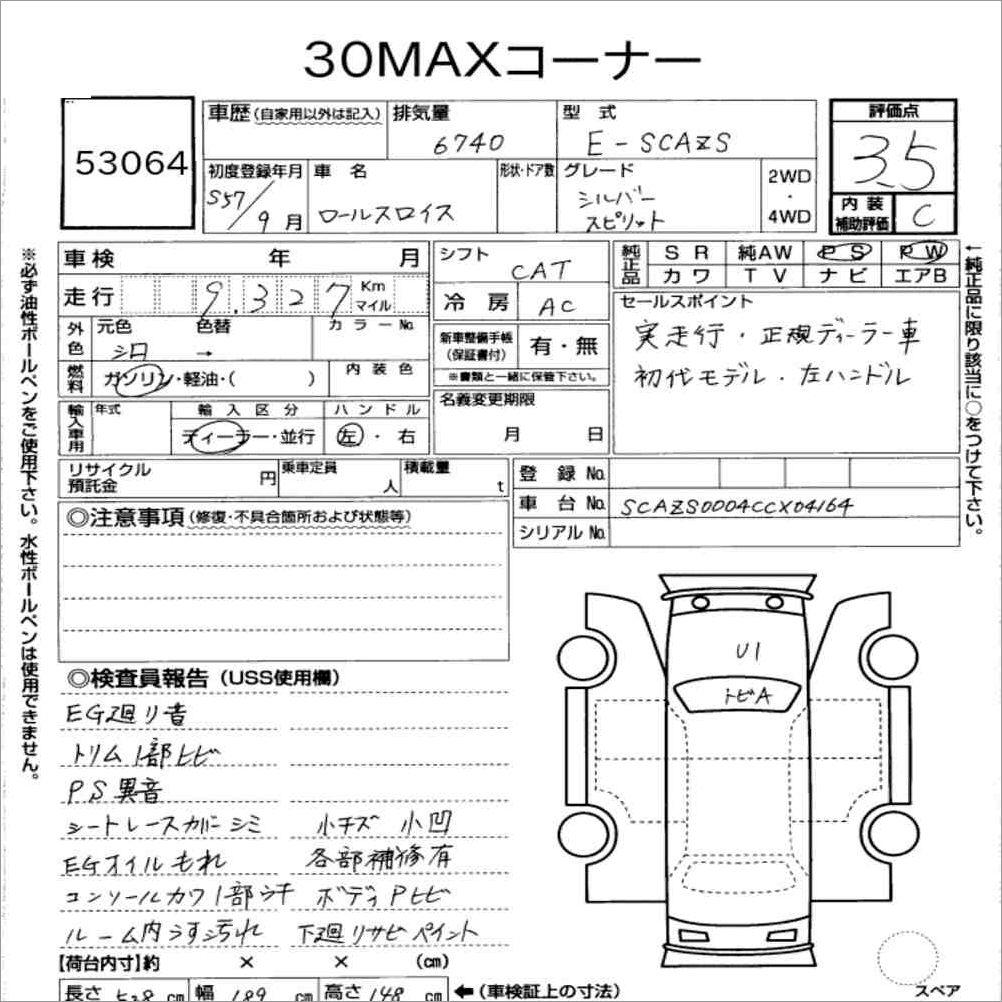 30MAXコーナー
53064
車歴(自家用以外は記入) 排気量 6740
型式 E-SCAZS
評価点 3.5
初度登録年月 S57/9月
車名 ロールスロイス
形状・ドア数
グレード シルバー スピリット
2WD・4WD
内装補助評価 C
車検 年 月
シフト CAT
純正品 SR 純AW PS PW
カワ TV ナビ エアB
走行 9.327 Km マイル
冷房 AC
セールスポイント
実走行・正規ディーラー車
初代モデル・左ハンドル
外色 元色 シロ 色替 → カラーNo.
新車整備手帳(保証書付) 有・無
※書類と一緒に保管下さい。
燃料 ガソリン・軽油・( ) 内装色
名義変更期限 月 日
輸入車用 年式 輸入区分 ハンドル
ディーラー・並行 左・右
リサイクル預託金 円 乗車定員 人 積載量 t
登録No.
車台No. SCAZS0004CCX04164
シリアルNo.
◎注意事項(修復・不具合箇所および状態等)
◎検査員報告(USS使用欄)
EG廻り音
トリム1部ヒビ
PS異音
シートレースカバーシミ 小キズ 小凹
EGオイルもれ 各部補修有
コンソールカワ1部ウキ ボディPヒビ
ルーム内うす汚れ 下廻りサビペイント
U1
トビA
スペア
【荷台内寸】約 × × (cm)
長さ 528 cm 幅 189 cm 高さ 148 cm ←(車検証上の寸法)
※必ず油性ボールペンをご使用下さい。水性ボールペンは使用できません。
←純正品に限り該当に○をつけて下さい。